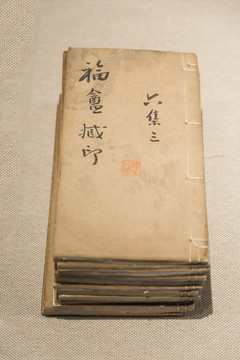 六集三
福盦藏印